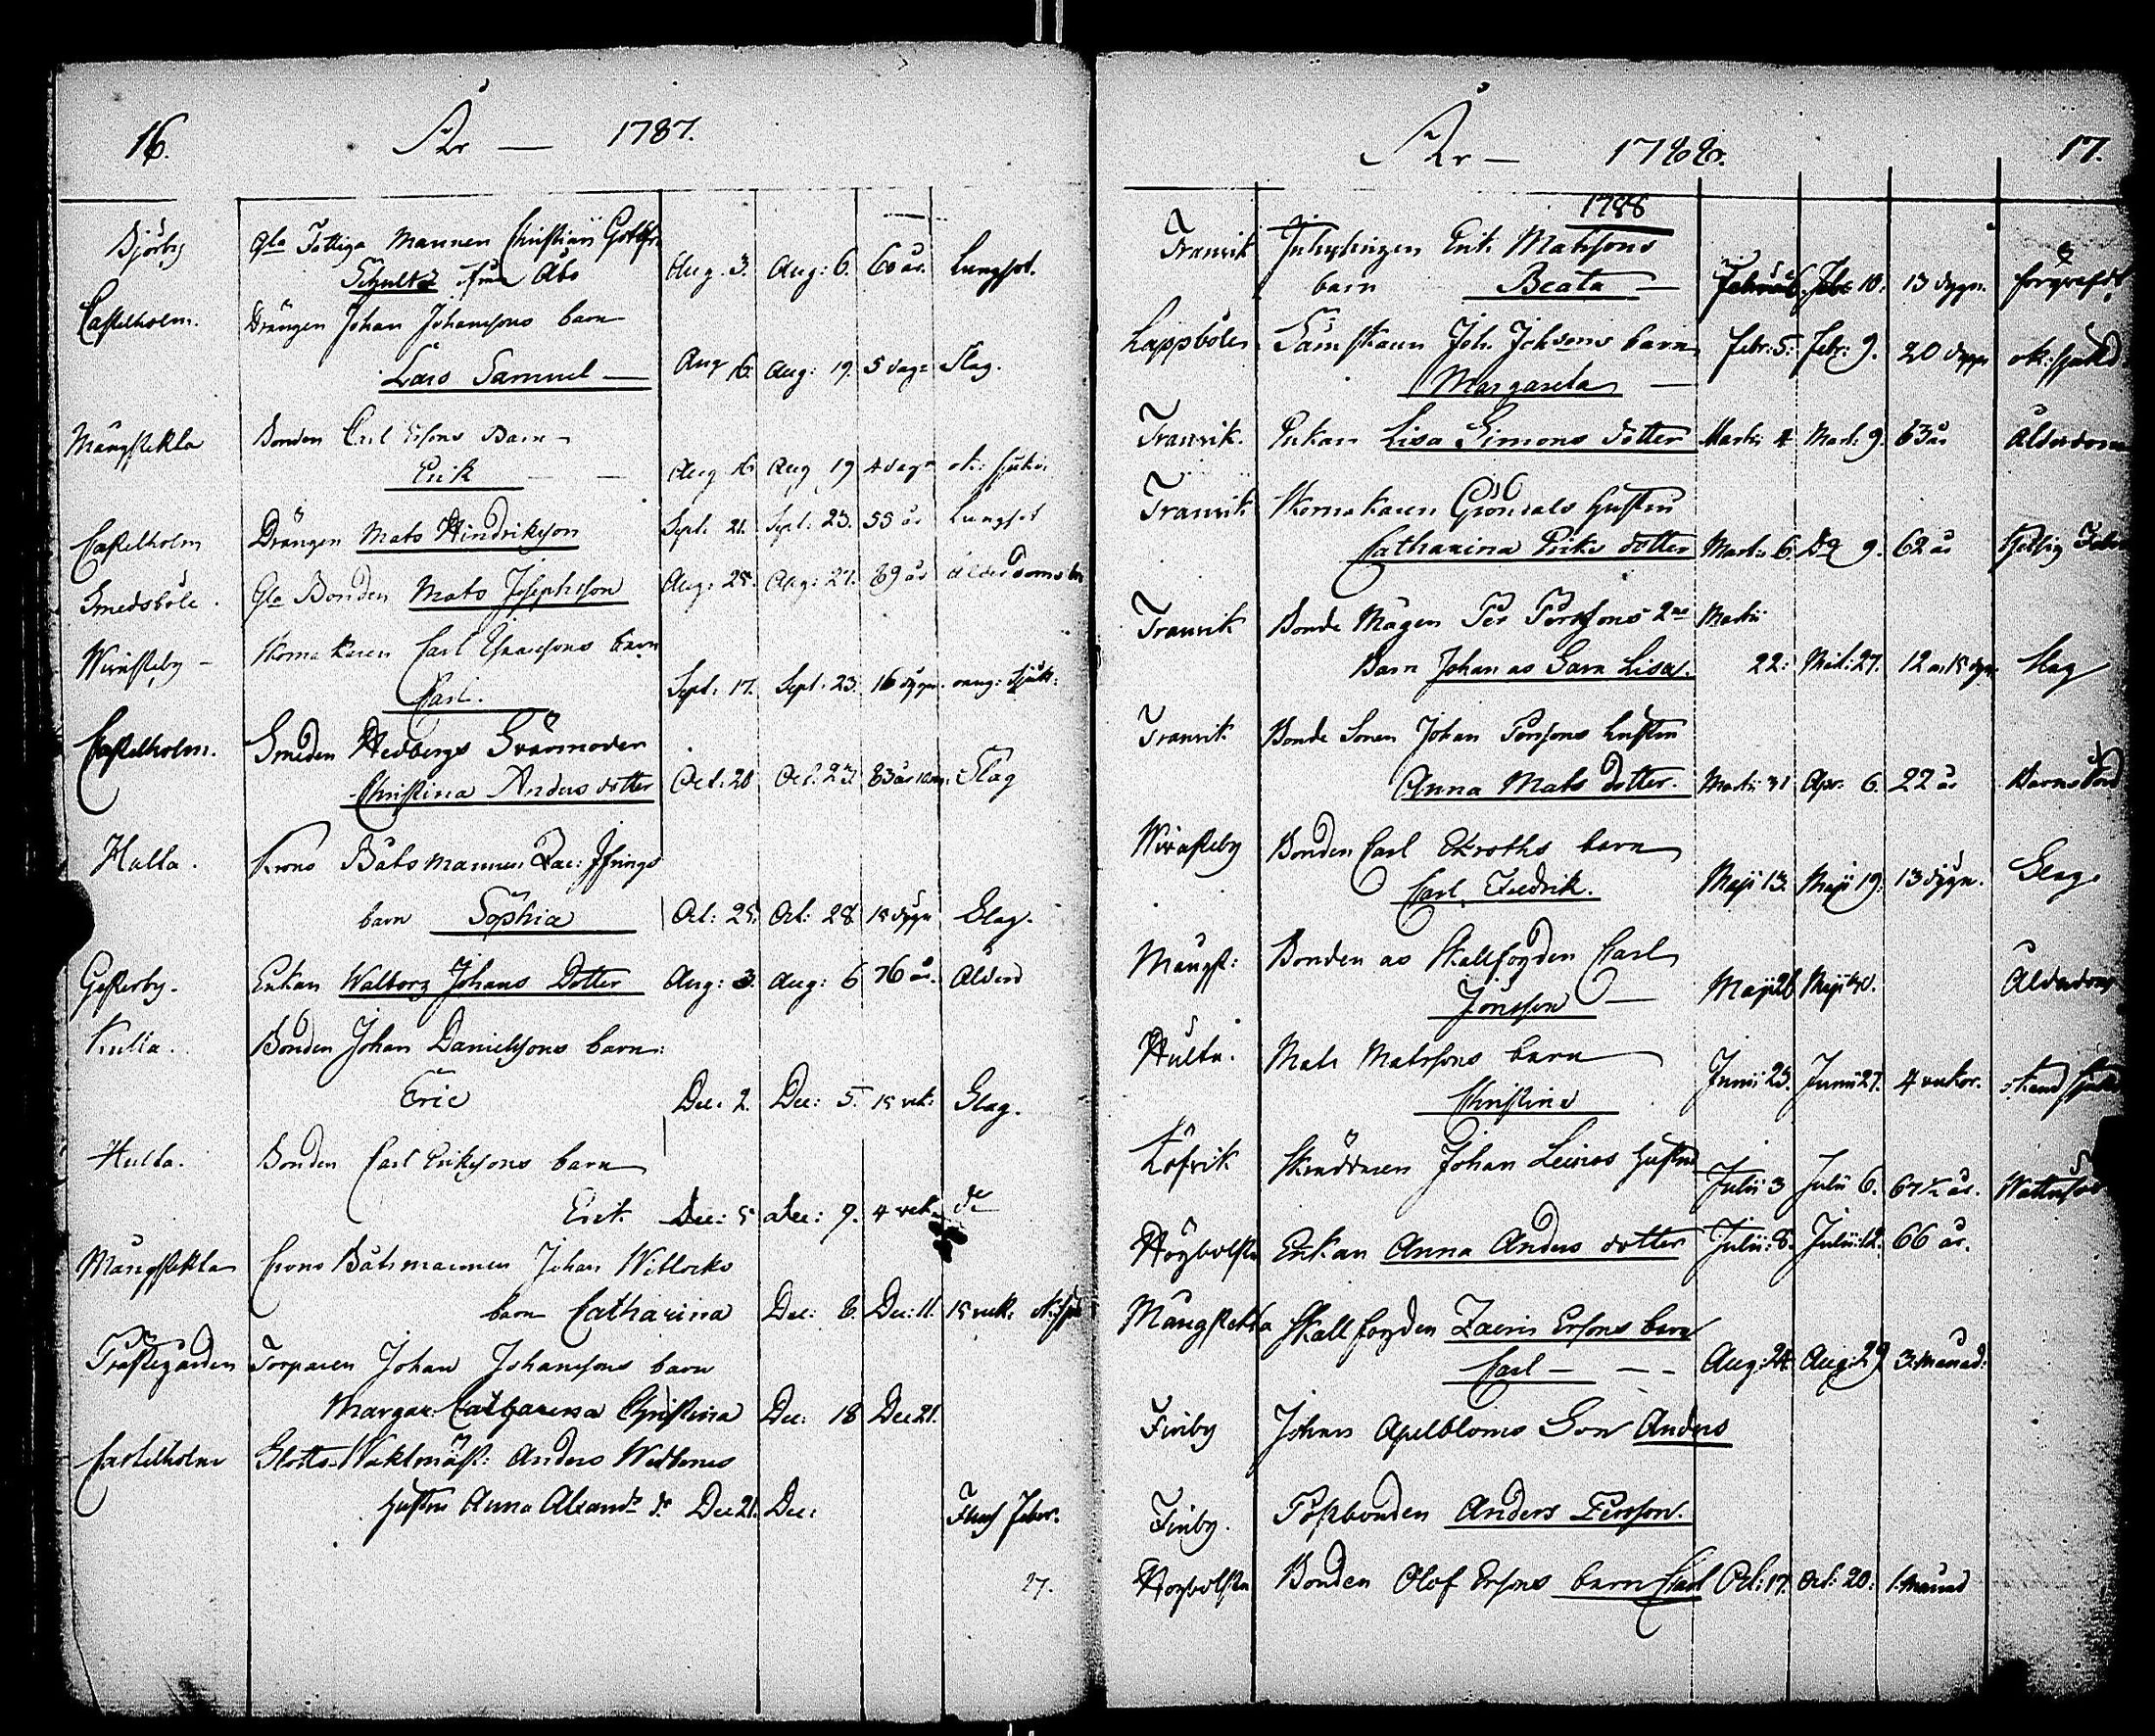 16. År — 1787.
Björby Gla Fattiga Mannen Christian
Schultz ifrån Åbo Aug. 3. Aug: 6. 60 år. Lungsot.
Castelholm. Drängen Johan Johanssons barn
Lars Samuel — Aug 16. Aug: 19. 5 dag: Slag.
Mångstekla Bonden Carl Ersons Barn
Erik — — Aug 16 Aug 19 4 dag: ok: sjukd:
Castelholm Drängen Mats Hindriksson Sept: 21. Sept: 23. 55 år Lungsot
Smedsböle. Gla Bonden Mats Josephsson Aug: 25. Aug: 27. 89 år
Wivasteby — Skomakaren Carl barn
Carl. Sept: 17. Sept: 23. 16 dygn. sjukd:
Castelholm. Smeden Hedbergs Svärmoder
Christina Anders dotter Oct: 20 Oct: 23. Slag
Hulta. Krons Båtsmannen
barn Sophia Oct: 25. Oct: 28 15 dygn Slag.
Gesterby. Enkan Walborg Johans Dotter Aug: 3. Aug: 6 76 år. Ålderd
Kulla. Bonden Johan Danielssons barn:
Eric Dec: 2. Dec: 5. 15 vek: Slag.
Hulta. Bonden Carl Erikssons barn
Erik Dec: 5 Dec: 9. 4 vek. do
Mångstekla Crons Båtsmannen Johan Witlocks
barn Catharina Dec: 8. Dec: 11. 15 vek:
Prästegården Torparen Johan Johanssons barn
Margar: Catharina Christina Dec: 18 Dec 21.
Castelholm Slotts-Waktmäst: Anders
hustru Anna dr Dec 21. Dec: Feber.
27.
År — 1788. 17.
1788
Tranvik Inhysingen Erik Matssons
barn Beata — Febr 10. 13 dygn.
Lappböle Joh. Johsons barn Febr: 5: Febr: 9. 20 dygn ok: sjukd
Margareta —
Tranvik. Enkan Lisa Simons dotter Martii 4 Mart: 9. 63 år Ålderdom
Tranvik Skomakaren Gröndals hustru
Catharina Eriks dotter Martii 6. Do 9. 62 år
Tranvik Bonde Mågen Per Perssons 2ne Martii
Barn Johan as Sara Lisa. 22: Mart: 27. Slag
Tranvik Bonde Sonen Johan Perssons hustru
Anna Mats dotter. Martii 31 Apr: 6. 22 år Barnsbörd
Wivasteby Bonden Carl Ekroths barn
Carl Fredrik. Maji 13. Maji 19. 13 dygn. Slag.
Mångst: Bonden as Skallfogden Carl
Jönsson — Maji 26 Maji 30. Ålderdom
Hulta. Mats Matssons barn
Christina Junii 23. Junii 27. 4 vekor.
Löfvik Skräddaren Johan hustru
Julii 3 Julii 6. 67½ år. Wattusot
Högbolsta Enkan Anna Anders dotter Julii: 8. Julii: 12. 66 år.
Mångstekla Skallfogden Ersons barn
Carl — — — Aug: 24. Aug: 29 3. månad:
Finby Johans Apelbloms Son Anders
Finby. Postbonden Anders Persson.
Högbolsta Bonden Olof Ersons barn Carl Oct: 17. Oct: 20: 1. månad